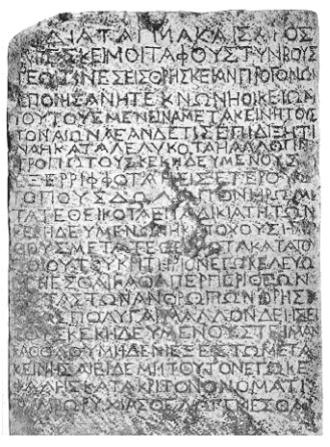 ΔΙΑΤΑΓΜΑΚΑΙΣΑΡΟΣ
ΑΡΕΣΚΕΙΜΟΙΤΑΦΟΥΣΤΥΝΒΟΥΣ
ΤΕΟΙΤΙΝΕΣΕΙΣΘΡΗΣΚΕΙΑΝΠΡΟΓΟΝΩΝ
ΕΠΟΙΗΣΑΝΗΤΕΚΝΩΝΗΟΙΚΕΙΩΝ
ΤΟΥΤΟΥΣΜΕΝΕΙΝΑΜΕΤΑΚΕΙΝΗΤΟΥΣ
ΤΟΝΑΙΩΝΑΕΑΝΔΕΤΙΣΕΠΙΔΙΞΗΤΙ
ΝΑΗΚΑΤΑΛΕΛΥΚΟΤΑΗΑΛΛΩΤΙΝΙ
ΤΡΟΠΩΤΟΥΣΚΕΚΗΔΕΥΜΕΝΟΥΣ
ΕΞΕΡΡΙΦΦΟΤΑΗΕΙΣΕΤΕΡΟΥΣ
ΤΟΠΟΥΣΔΩΛΩΠΟΝΗΡΩΜΕ
ΤΑΤΕΘΕΙΚΟΤΑΕΠΑΔΙΚΙΑΤΗΤΩΝ
ΚΕΚΗΔΕΥΜΕΝΩΝΗΚΑΤΟΧΟΥΣΗΛΙ
ΘΟΥΣΜΕΤΑΤΕΘΕΙΚΟΤΑΚΑΤΑΤΟΥ
ΤΟΙΟΥΤΟΥΚΡΙΤΗΡΙΟΝΕΓΩΚΕΛΕΥΩ
ΓΕΝΕΣΘΑΙΚΑΘΑΠΕΡΠΕΡΙΘΕΩΝ
ΕΙΣΤΑΣΤΩΝΑΝΘΡΩΠΩΝΘΡΗΣ
ΚΙΑΣΠΟΛΥΓΑΡΜΑΛΛΟΝΔΕΗΣΕΙ
ΤΟΥΣΚΕΚΗΔΕΥΜΕΝΟΥΣΤΕΙΜΑΝ
ΚΑΘΟΛΟΥΜΗΔΕΝΙΕΞΕΣΤΩΜΕΤΑ
ΚΕΙΝΗΣΑΙΕΙΔΕΜΗΤΟΥΤΟΝΕΓΩΚΕ
ΦΑΛΗΣΚΑΤΑΚΡΙΤΟΝΟΝΟΜΑΤΙ
ΤΥΜΒΩΡΥΧΙΑΣΘΕΛΩΓΕΝΕΣΘΑΙ